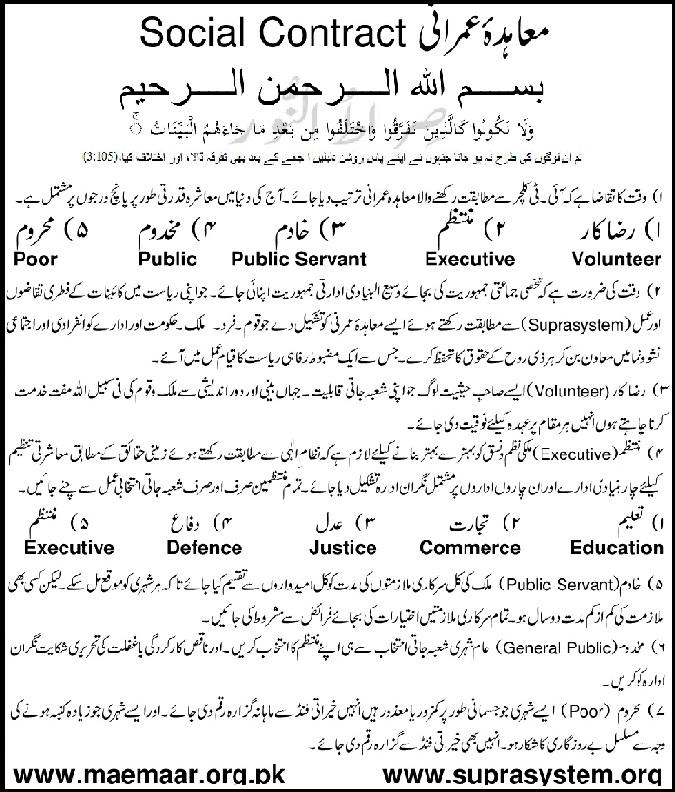 معاہدۂ عمرانی Social Contract
بسم الله الرحمن الرحيم
صراط النور
وَلَا تَكُونُوا كَالَّذِينَ تَفَرَّقُوا وَاخْتَلَفُوا مِن بَعْدِ مَا جَاءَهُمُ الْبَيِّنَاتُ ۚ
تم ان لوگوں کی طرح نہ ہو جانا جنہوں نے اپنے پاس روشن دلیلیں آ جانے کے بعد بھی تفرقہ ڈالا، اور اختلاف کیا، (3:105)
۱) وقت کا تقاضا ہے کہ آئی۔ٹی کلچر سے مطابقت رکھنے والا معاہدہ عمرانی ترتیب دیا جائے۔ آج کی دنیا میں معاشرہ قدرتی طور پر پانچ درجوں پر مشتمل ہے۔
۱) رضا کار ۲) منتظم ۳) خادم ۴) مخدوم ۵) محروم
Poor Public Public Servant Executive Volunteer
۲) وقت کی ضرورت ہے کہ شخصی جماعتی جمہوریت کی بجائے وسیع البنیادی ادارتی جمہوریت اپنائی جائے۔ جو اپنی ریاست میں کائینات کے فطری تقاضوں
اور عمل (Suprasystem) سے مطابقت رکھتے ہوئے ایسے معاہدۂ عمرنی کو تشکیل دے جو قوم۔ فرد۔ ملک۔ حکومت اور ادارے کو انفرادی اور اجتماعی
نشوونما میں معاون بن کر ہر ذی روح کے حقوق کا تحفظ کرے۔ جس سے ایک مضبوط رفاہی ریاست کا قیام عمل میں آئے۔
۳) رضا کار (Volunteer) ایسے صاحبِ حیثیت لوگ جو اپنی شعبہ جاتی قابلیت۔ جہاں بینی اور دور اندیشی سے ملک و قوم کی فی سبیل اللہ مفت خدمت
کرنا چاہتے ہوں انہیں ہر مقام پر عہدہ کیلئے فوقیت دی جائے۔
۴) منتظم (Executive) ملکی نظم و نسق کو بہتر سے بہتر بنانے کیلئے لازم ہے کہ نظام الٰہی سے مطابقت رکھتے ہوئے زمینی حقائق کے مطابق معاشرتی تنظیم
کیلئے چار بنیادی ادارے اور ان چاروں اداروں پر مشتمل نگران ادارہ تشکیل دیا جائے۔ تمام منتظمین صرف اور صرف شعبہ جاتی انتخابی عمل سے چنے جائیں۔
۱) تعلیم ۲) تجارت ۳) عدل ۴) دفاع ۵) منتظم
Executive Defence Justice Commerce Education
۵) خادم (Public Servant) ملک کی کل سرکاری ملازمتوں کی مدت کو کل امیدواروں سے تقسیم کیا جائے تاکہ ہر شہری کو موقع مل سکے۔ لیکن کسی بھی
ملازمت کی کم از کم مدت دو سال ہو۔ تمام سرکاری ملازمتیں اختیارات کی بجائے فرائض سے مشروط کی جائیں۔
۶) مخدوم (General Public) عام شہری شعبہ جاتی انتخاب سے ہی اپنے منتظم کا انتخاب کریں۔ اور ناقص کارکردگی یا غفلت کی تحریری شکایت نگران
ادارہ کو کریں۔
۷) محروم (Poor) ایسے شہری جو جسمانی طور پر کمزور یا معذور ہیں انہیں خیراتی فنڈ سے ماہانہ گزارہ رقم دی جائے۔ اور ایسے شہری جو زیادہ کنبہ ہونے کی
وجہ سے مسلسل بے روزگاری کا شکار ہو۔ انہیں بھی خیرتی فنڈ سے گزارہ رقم دی جائے۔
www.maemaar.org.pk www.suprasystem.org